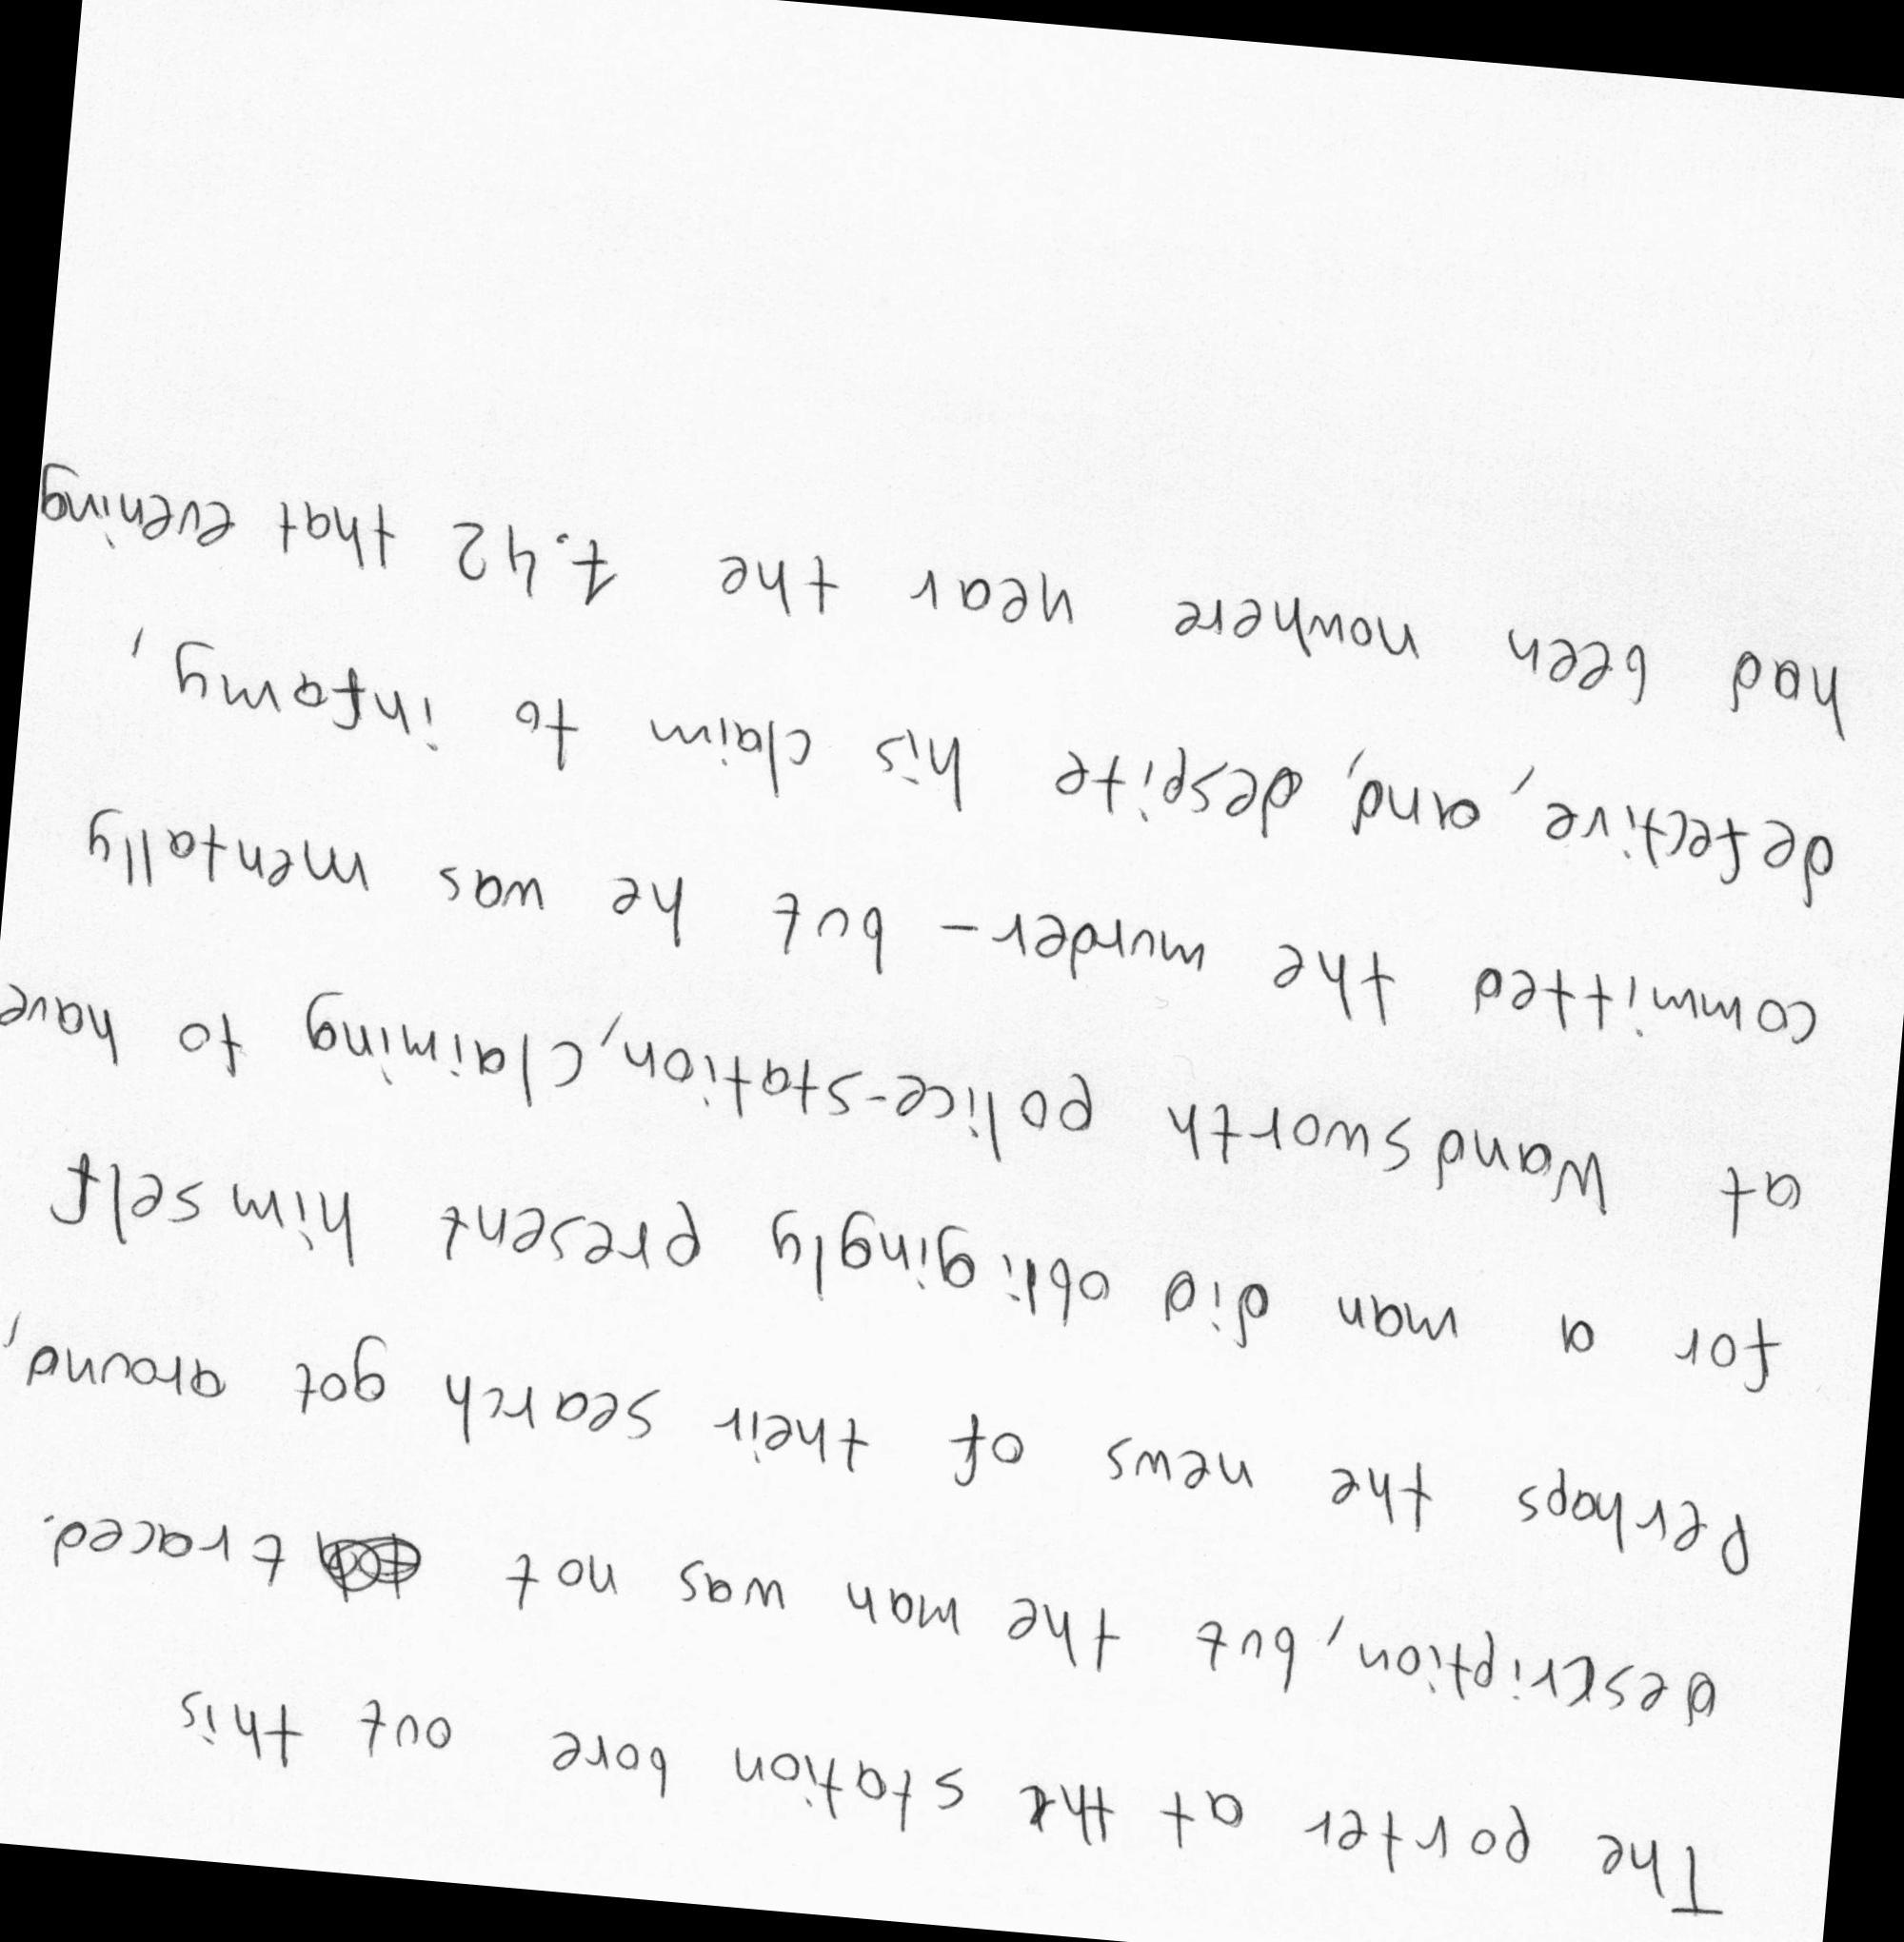 The porter at the station bore out this
description, but the man was not traced.
Perhaps the news of their search got around,
for a man did obligingly present himself
at Wandsworth police-station, claiming to have
committed the murder - but he was mentally
defective, and, despite his claim to infamy,
had been nowhere near the 7.42 that evening